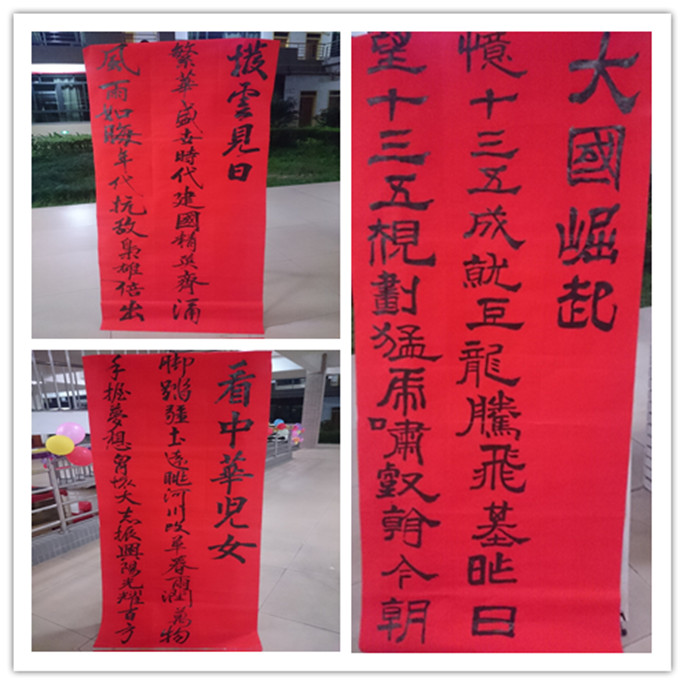 撥雲見日
繁華盛世時代建國精英齊涌
風雨如晦年代抗敌梟雄倍出
看中華兒女
脚踏疆土遠眺河川改革春雨潤萬物
手握夢想胸懷大志振興陽光耀百方
大國崛起
憶十三五成就巨龍騰飛基昨日
望十三五規劃猛虎嘯翰今朝